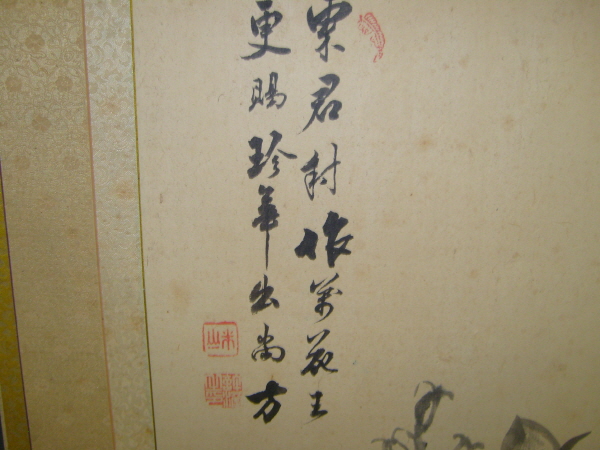 東君封作萬花王
更賜珍華出尚方
米山